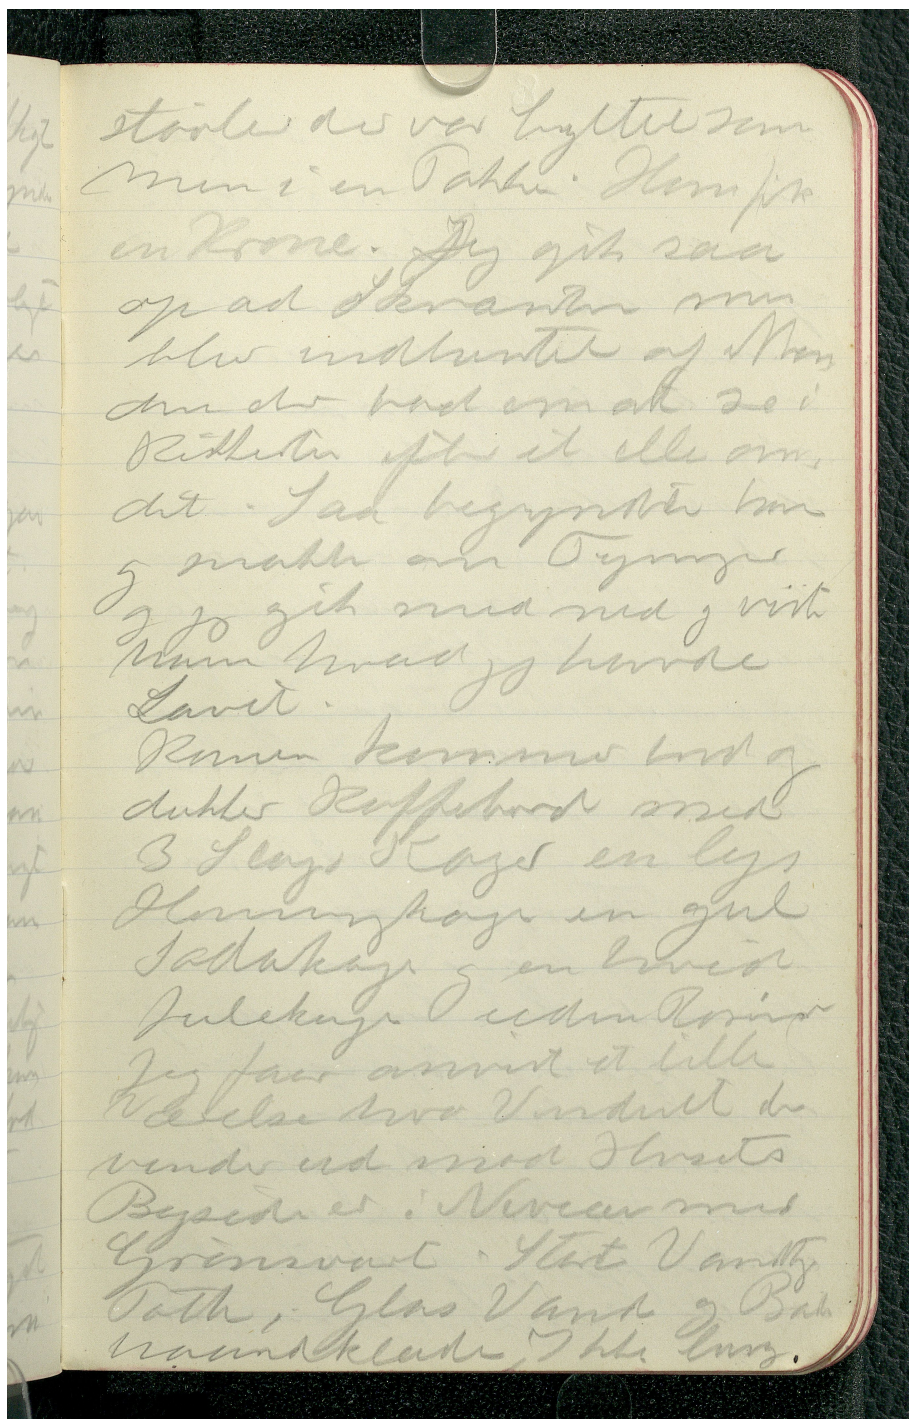 støvler der var hyllet som
men i en Takke. Ham fik
en Krone. Jeg gik saa
op ad Skrænten men
blev indhentet af Man
den der bad om at se i
Kikkerten efter et eller an
det. Saa begyndte han
og snakke om Tegninger
og jeg gik med ned og viste
ham hvad jeg havde
Lavet.
Konen kommer ind og
dækker Kaffebord med
3 Slags Kager en lys
Honningkage en gul
Sodakage og en hvid
Julekage uden Rosiner
Jeg faar anvist et lille
Værelse hvor Vinduet der
vender ud mod Husets
Bagside er i Niveau med
Grønsvært. Stort Vandfad
Glas Vand og Bade
haandklæde, Ikke